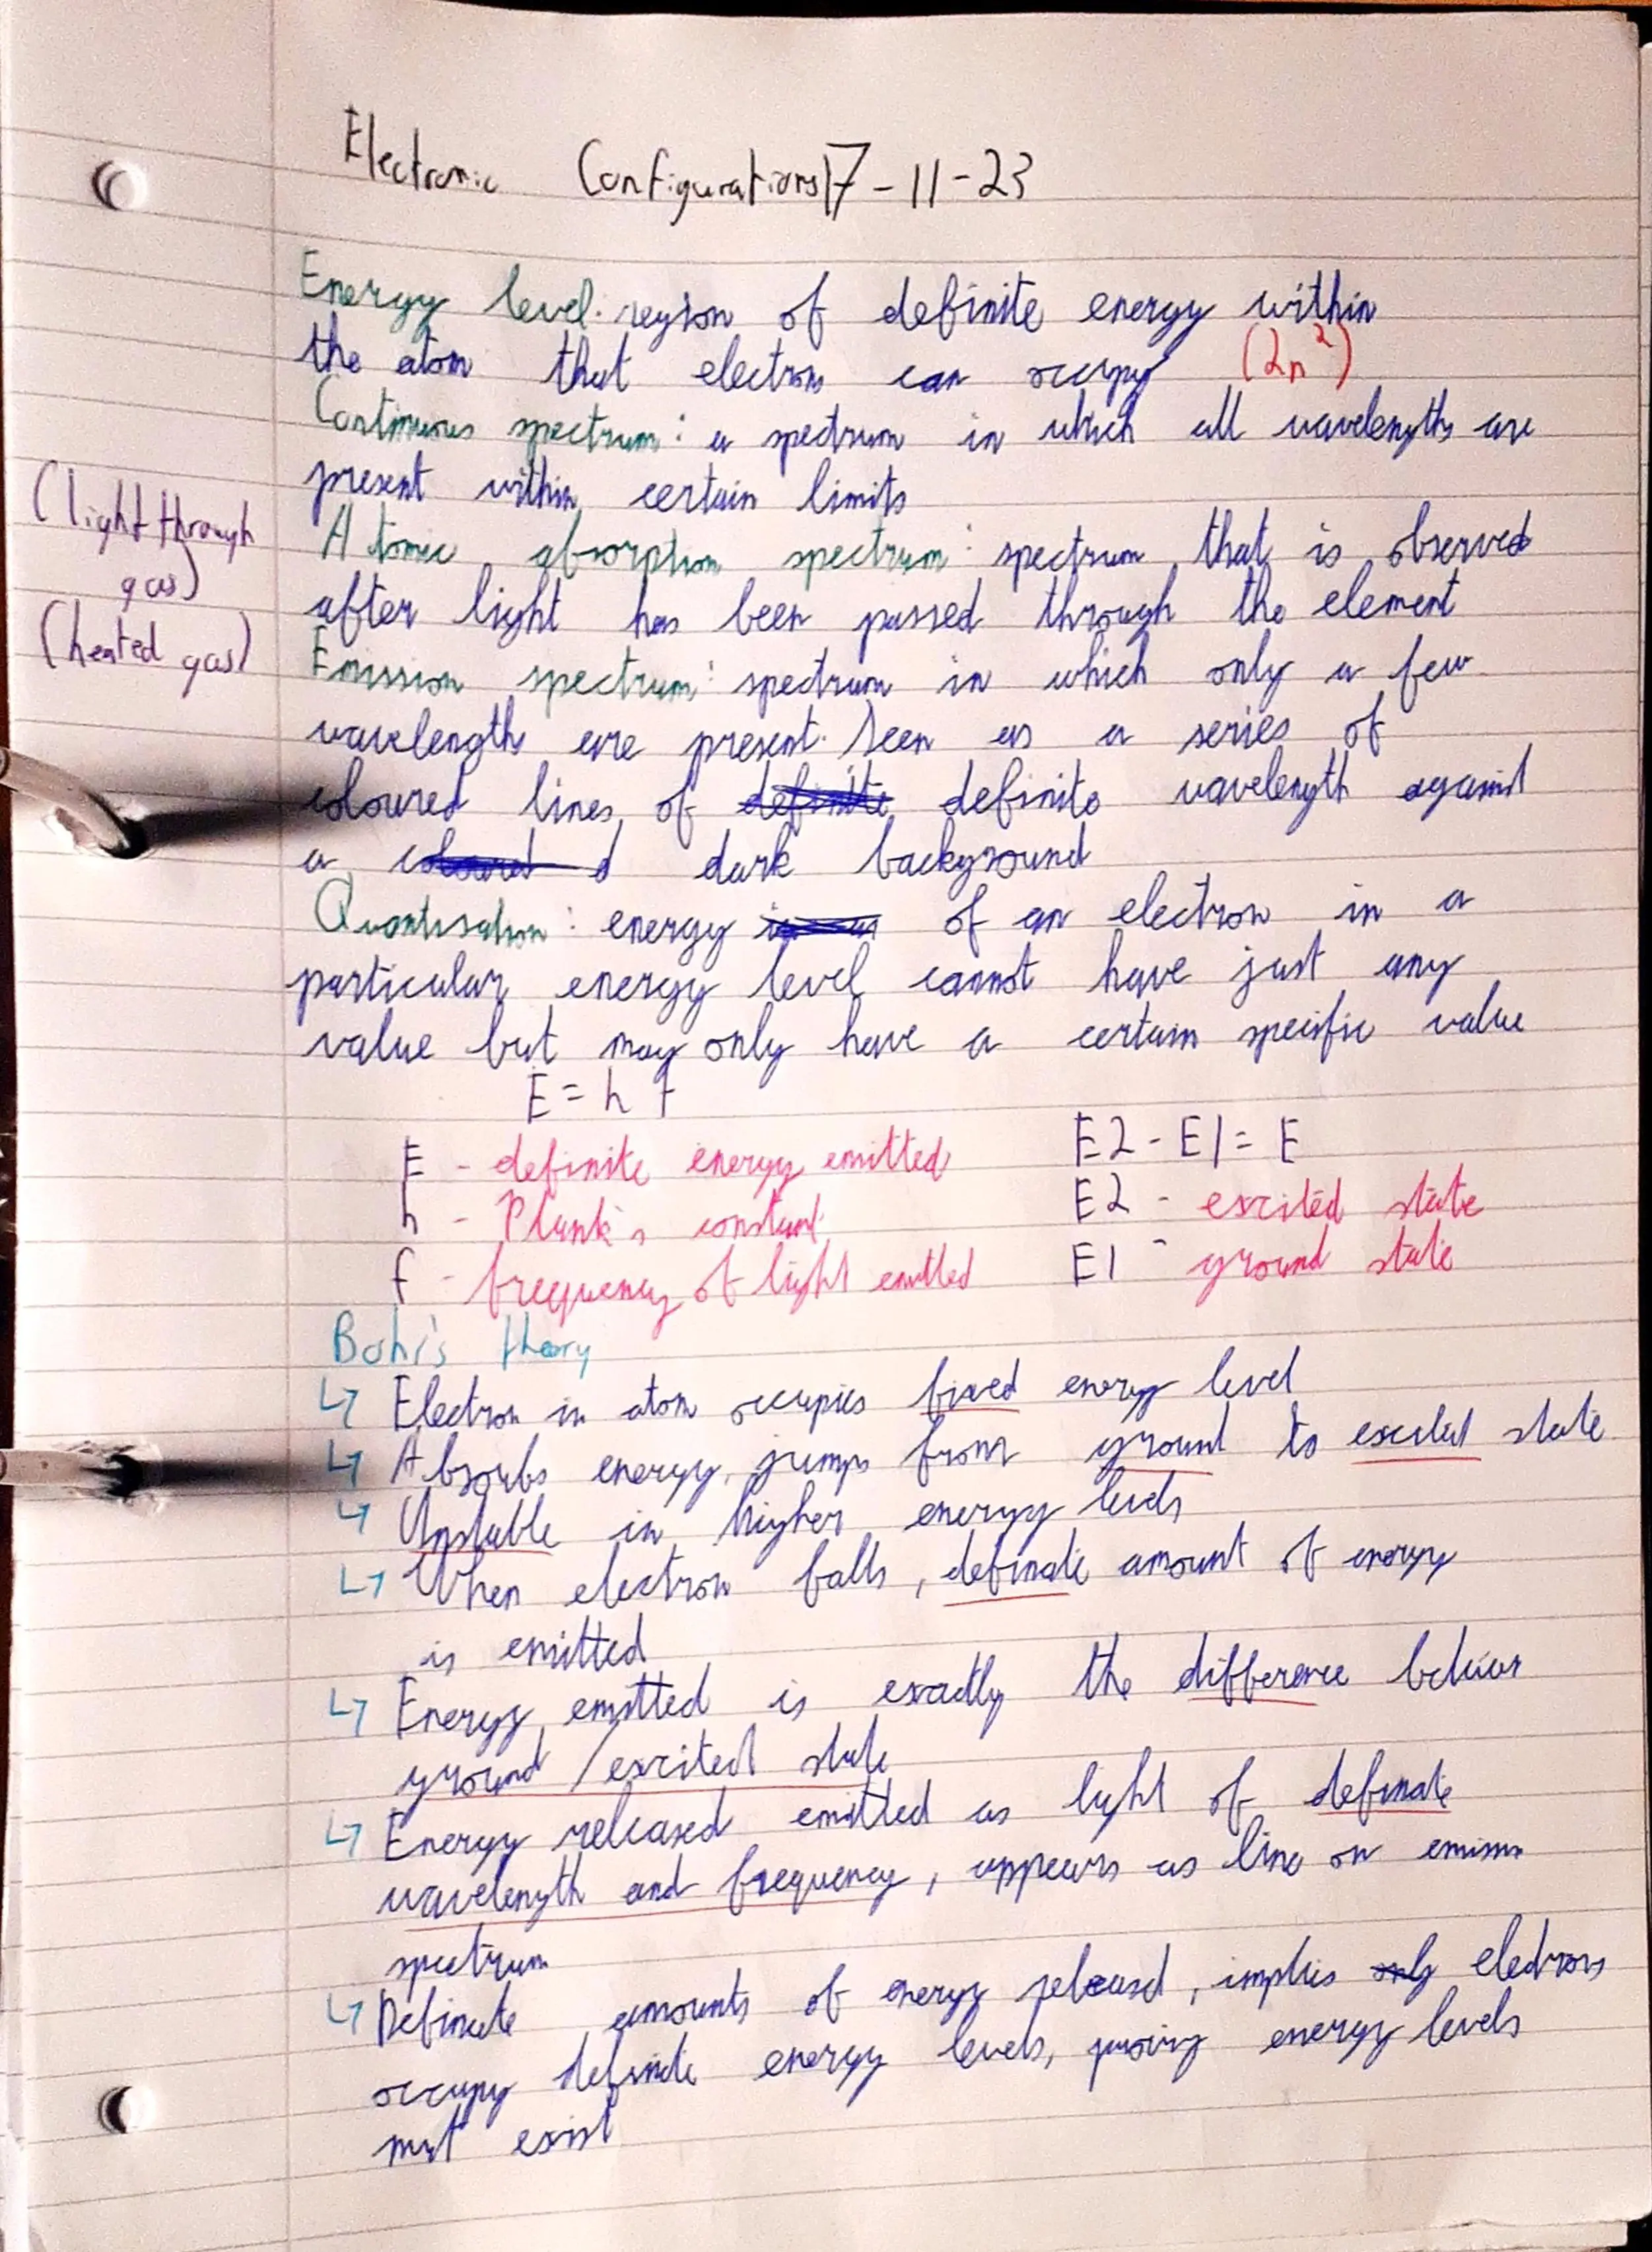 Electronic Configurations 17-11-23
Energy level: region of definite energy within
the atom that electrons can occupy (2n²)
Continuous spectrum: a spectrum in which all wavelengths are
present within certain limits
(light through
gas)
Atomic absorption spectrum: spectrum that is observed
after light has been passed through the element
(heated gas)
Emission spectrum: spectrum in which only a few
wavelengths are present. Seen as a series of
coloured lines of definite definite wavelength against
a coloured d dark background
Quantisation: energy of an electron in a
particular energy level cannot have just any
value but may only have a certain specific value
E = h f
E - definite energy emitted
h - Plank's constant
f - frequency of light emitted
E2 - E1 = E
E2 - excited state
E1 - ground state
Bohr's theory
↳ Electron in atom occupies fixed energy level
↳ Absorbs energy, jumps from ground to excited state
↳ Unstable in higher energy levels
↳ When electron falls, definate amount of energy
is emitted
↳ Energy emitted is exactly the difference between
ground / excited state
↳ Energy released emitted as light of definate
wavelength and frequency, appears as line on emission
spectrum
↳ Definate amounts of energy released, implies only electrons
occupy definite energy levels, proving energy levels
must exist